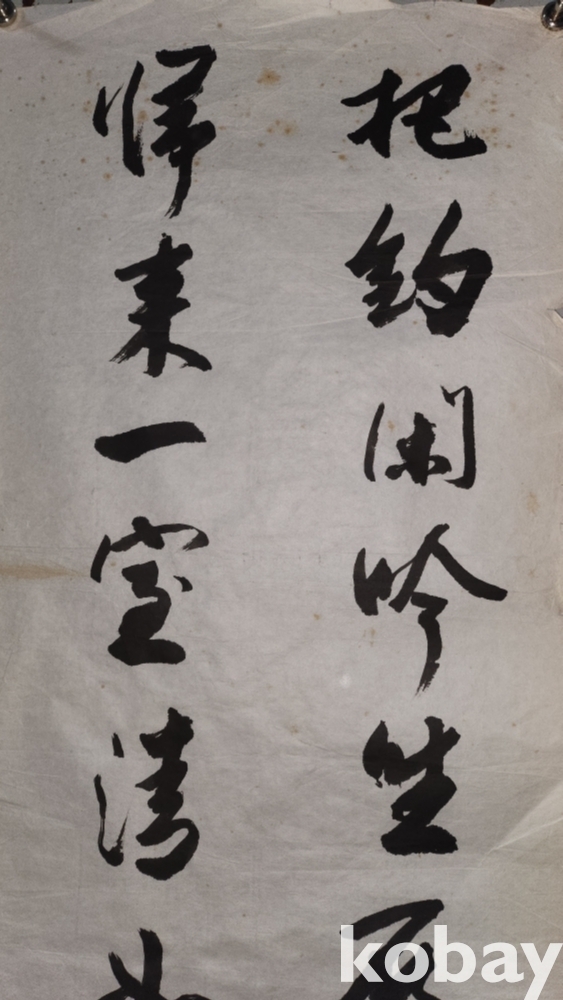 把釣閑吟坐
歸來一室清
kobay